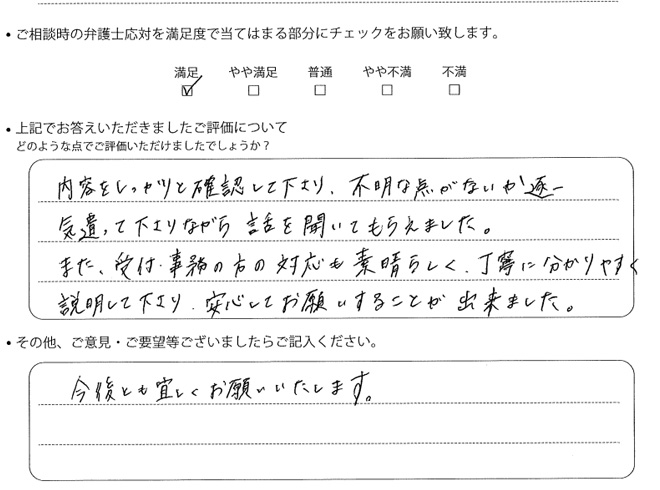 • ご相談時の弁護士応対を満足度で当てはまる部分にチェックをお願い致します。
満足 やや満足 普通 やや不満 不満
☑ □ □ □ □
• 上記でお答えいただきましたご評価について
どのような点でご評価いただけましたでしょうか？
内容をしっかりと確認して下さり、不明な点がないか逐一
気遣って下さりながら話を聞いてもらえました。
また、受付・事務の方の対応も素晴らしく、丁寧に分かりやすく
説明して下さり、安心してお願いすることが出来ました。
• その他、ご意見・ご要望等ございましたらご記入ください。
今後とも宜しくお願いいたします。